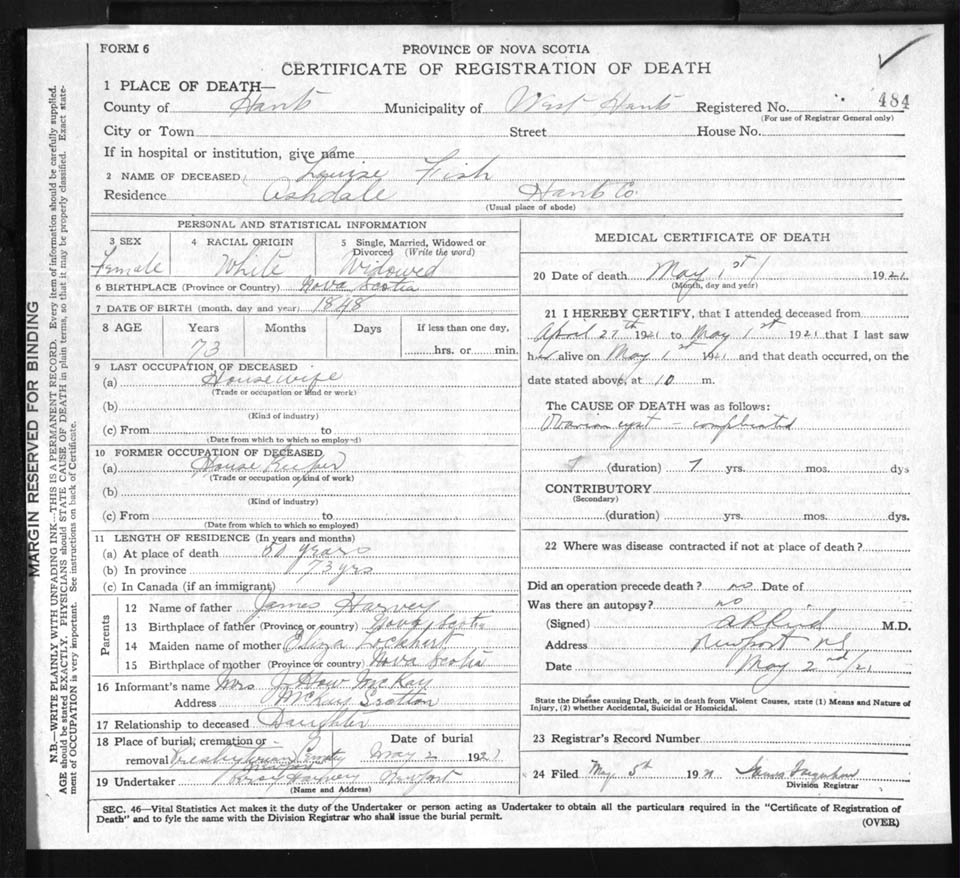 FORM 6
PROVINCE OF NOVA SCOTIA
CERTIFICATE OF REGISTRATION OF DEATH
1 PLACE OF DEATH—
County of Hants Municipality of West Hants Registered No. 484
(For use of Registrar General only)
City or Town Street House No.
If in hospital or institution, give name
2 NAME OF DECEASED Louise Fish
Residence Ashdale Hants Co.
(Usual place of abode)
PERSONAL AND STATISTICAL INFORMATION
3 SEX 4 RACIAL ORIGIN 5 Single, Married, Widowed or
Divorced (Write the word)
Female White Widowed
6 BIRTHPLACE (Province or Country) Nova Scotia
7 DATE OF BIRTH (month, day and year) 1848
8 AGE Years Months Days If less than one day,
73 hrs. or min.
9 LAST OCCUPATION OF DECEASED
(a) Housewife
(Trade or occupation or kind or work)
(b)
(Kind of industry)
(c) From to
(Date from which to which so employed)
10 FORMER OCCUPATION OF DECEASED
(a) House Keeper
(Trade or occupation or kind of work)
(b)
(Kind of industry)
(c) From to
(Date from which to which so employed)
11 LENGTH OF RESIDENCE (In years and months)
(a) At place of death 50 years
(b) In province 73 yrs
(c) In Canada (if an immigrant)
Parents
12 Name of father James Harvey
13 Birthplace of father (Province or country) Nova Scotia
14 Maiden name of mother Eliza Lockhart
15 Birthplace of mother (Province or country) Nova Scotia
16 Informant's name Mrs J How McKay
Address McKay Section
17 Relationship to deceased Daughter
18 Place of burial, cremation or Date of burial
removal Presbyterian May 2 1921
19 Undertaker Harvey Newport
(Name and Address)
MEDICAL CERTIFICATE OF DEATH
20 Date of death May 1st 1921
(Month, day and year)
21 I HEREBY CERTIFY, that I attended deceased from
April 27th 1921 to May 1st 1921 that I last saw
her alive on May 1st 1921 and that death occurred, on the
date stated above, at 10 m.
The CAUSE OF DEATH was as follows:
Ovarian cyst – complicated
(duration) 7 yrs. mos. dys
CONTRIBUTORY
(Secondary)
(duration) yrs. mos. dys.
22 Where was disease contracted if not at place of death?
Did an operation precede death? no Date of
Was there an autopsy? no
(Signed) M.D.
Address Newport NS
Date May 2nd/21
State the Disease causing Death, or in death from Violent Causes, state (1) Means and Nature of
Injury, (2) whether Accidental, Suicidal or Homicidal.
23 Registrar's Record Number
24 Filed May 5th 1921
Division Registrar
SEC. 46—Vital Statistics Act makes it the duty of the Undertaker or person acting as Undertaker to obtain all the particulars required in the "Certificate of Registration of
Death" and to fyle the same with the Division Registrar who shall issue the burial permit.
(OVER)
MARGIN RESERVED FOR BINDING
N.B.—WRITE PLAINLY WITH UNFADING INK—THIS IS A PERMANENT RECORD. Every item of information should be carefully supplied.
AGE should be stated EXACTLY. PHYSICIANS should STATE CAUSE OF DEATH in plain terms, so that it may be properly classified. Exact state-
ment of OCCUPATION is very important. See instructions on back of Certificate.